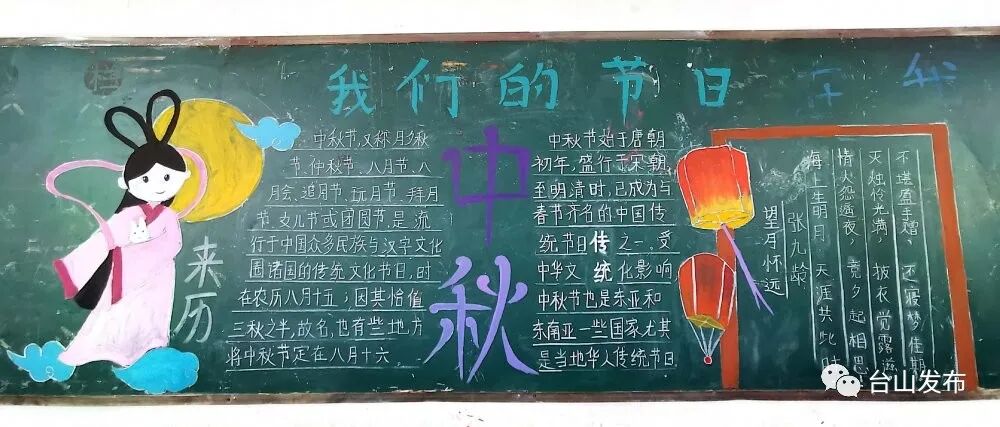 我们的节日
中秋
来历
中秋节,又称月夕秋
节、仲秋节、八月节、八
月会、追月节、玩月节、拜月
节、女儿节或团圆节,是流
行于中国众多民族与汉字文化
圈诸国的传统文化节日,时
在农历八月十五;因其恰值
三秋之半,故名,也有些地方
将中秋节定在八月十六
中秋节始于唐朝
初年,盛行于宋朝,
至明清时,已成为与
春节齐名的中国传
统节日传之一,受
中华文统化影响
中秋节也是东亚和
东南亚一些国家尤其
是当地华人传统节日
望月怀远
张九龄
海上生明月 天涯共此时
情人怨遥夜,竟夕起相思
灭烛怜光满,披衣觉露滋
不堪盈手赠,不寝梦佳期
台山发布